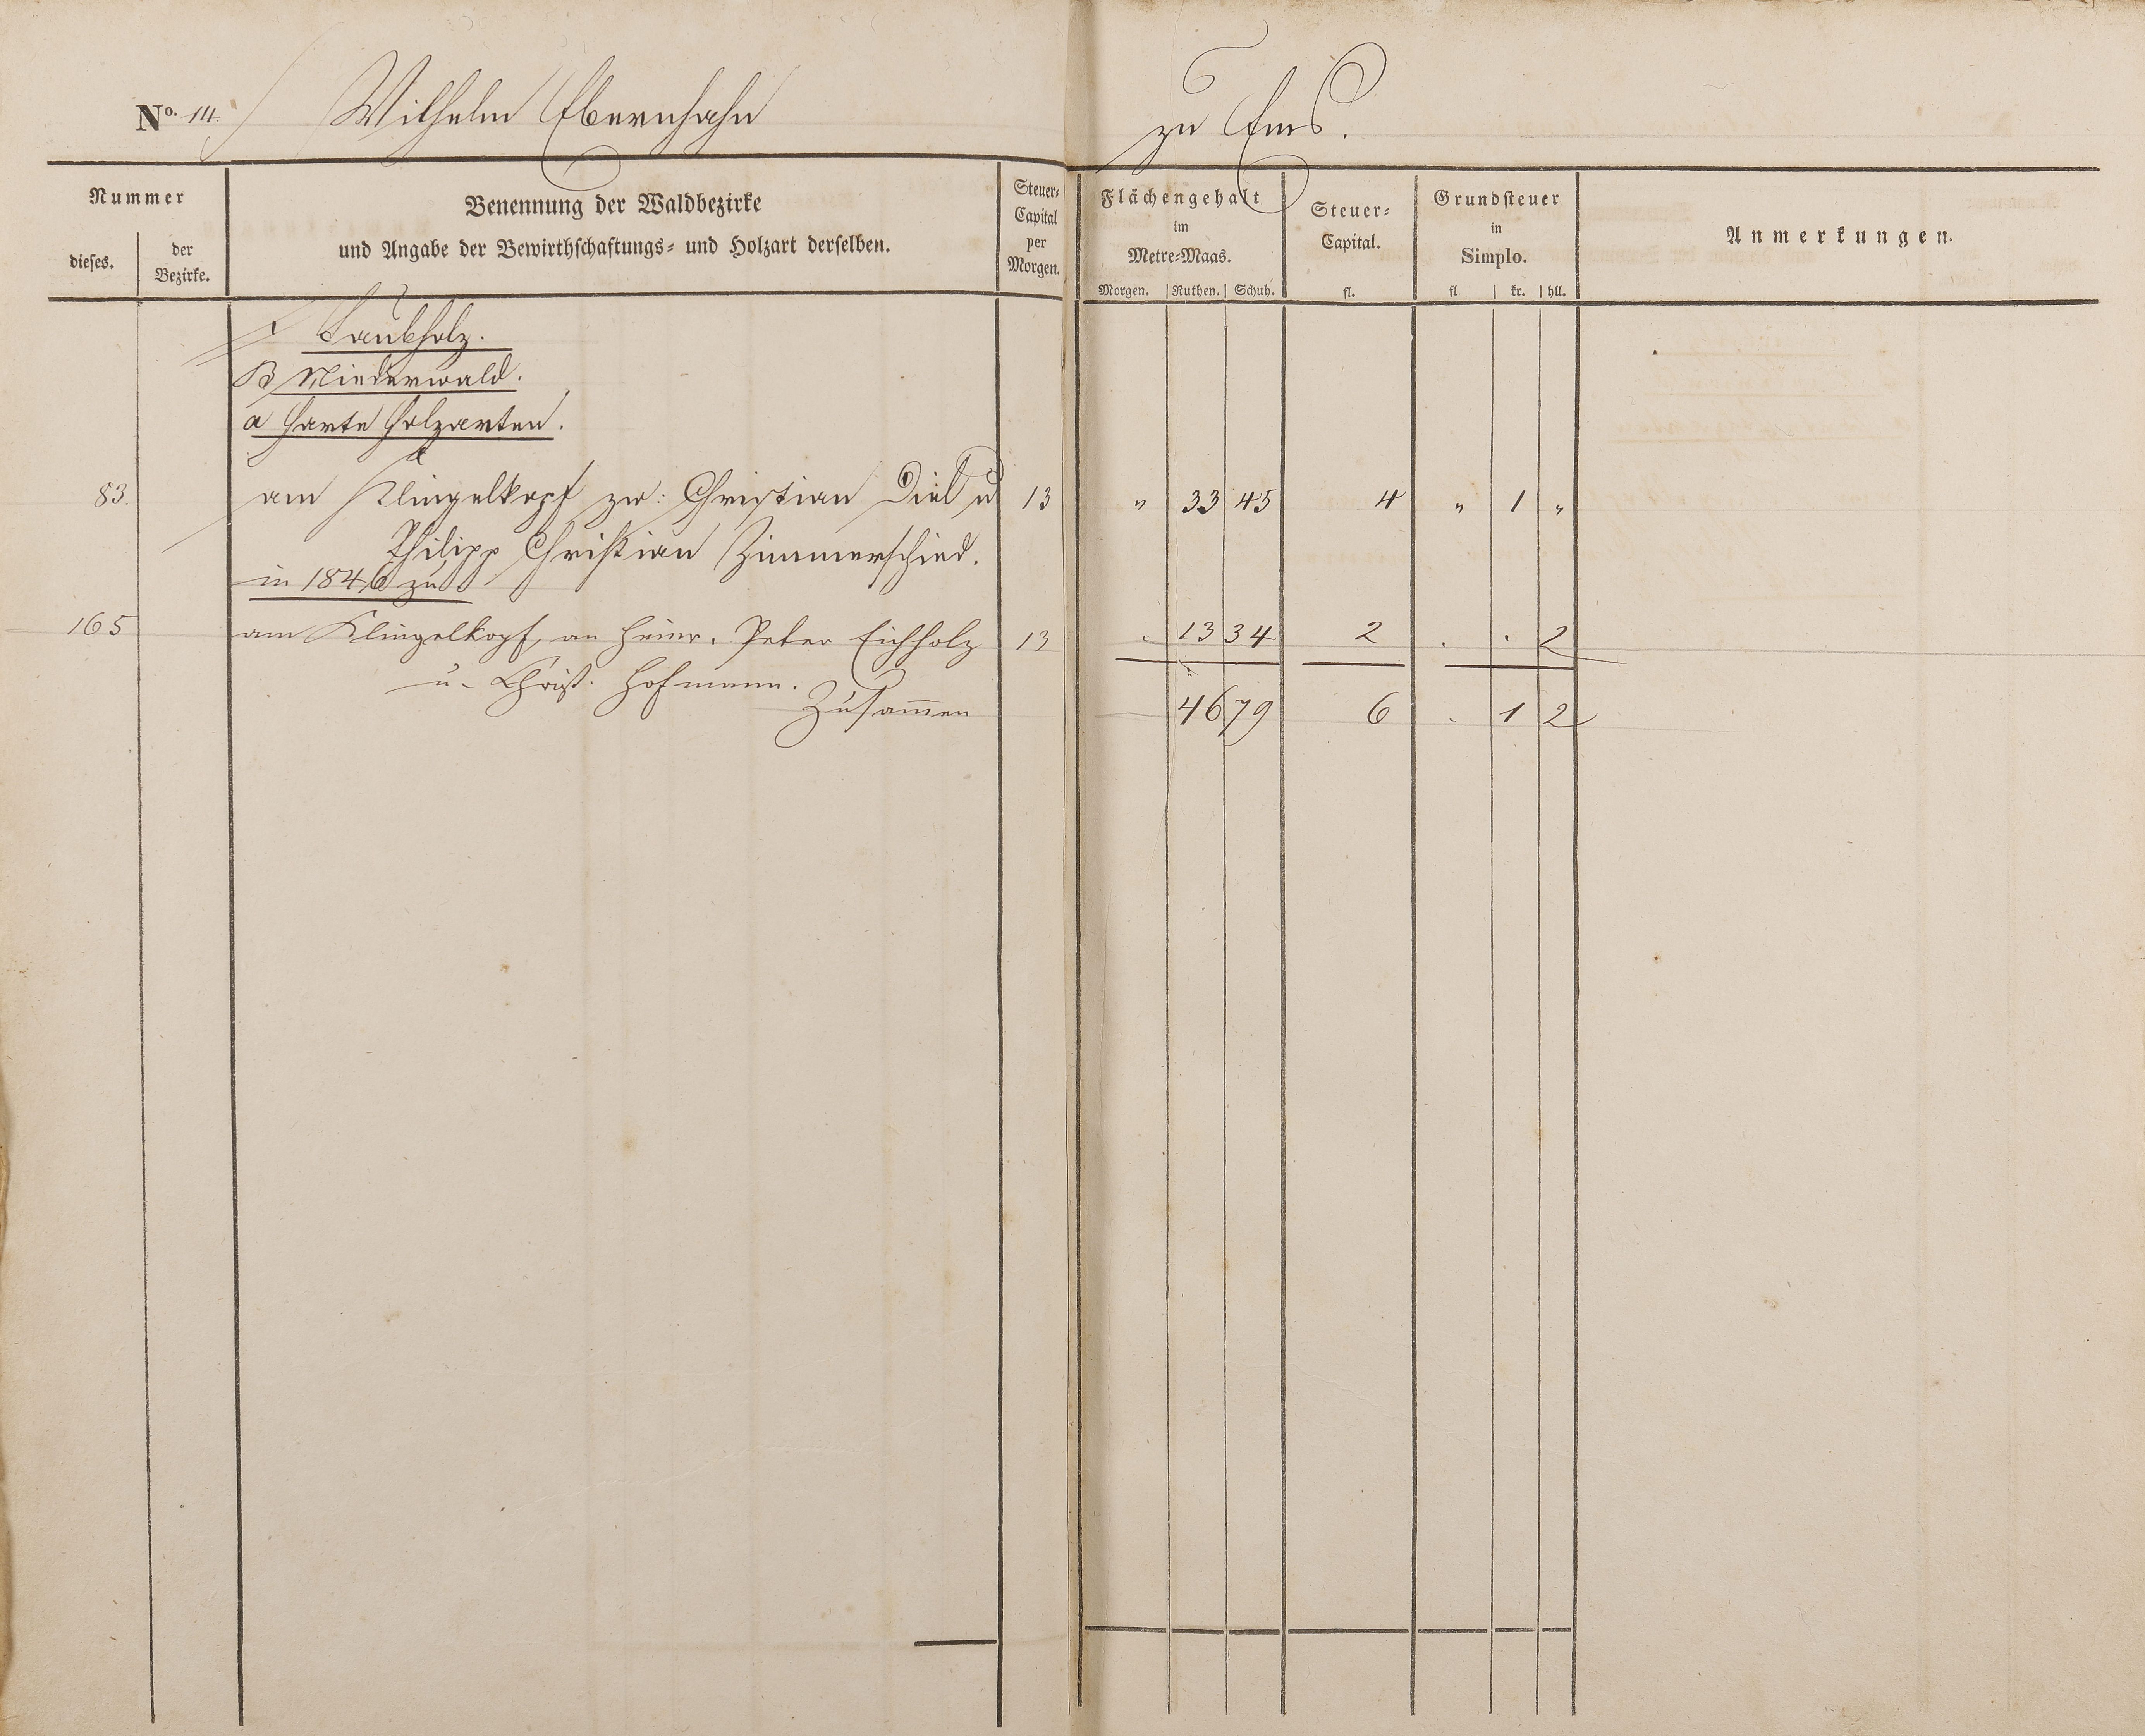 No. 14. Wilhelm Ebernhahn zu Ems.
Nummer
dieses.
der
Bezirke.
Benennung der Waldbezirke
und Angabe der Bewirthschaftungs- und Holzart derselben.
Steuer-
Capital
per
Morgen.
Flächengehalt
im
Metre-Maas.
Morgen. Ruthen. Schuh.
Steuer-
Capital.
fl.
Grundsteuer
in
Simplo.
fl kr. hll.
Anmerkungen.
Laubholz.
B Niederwald.
a Harte Holzarten.
83. am Klingelkopf zw: Christian Diel u 13 " 33 45 4 " 1 "
Philipp Christian Zimmerschied.
in 1846 zu
165 am Klingelkopf, an Heinr. Peter Eichholz 13 . 13 34 2 . . 2
u. Christ. Hofmann.
Zusam̄en 46 79 6 . 1 2